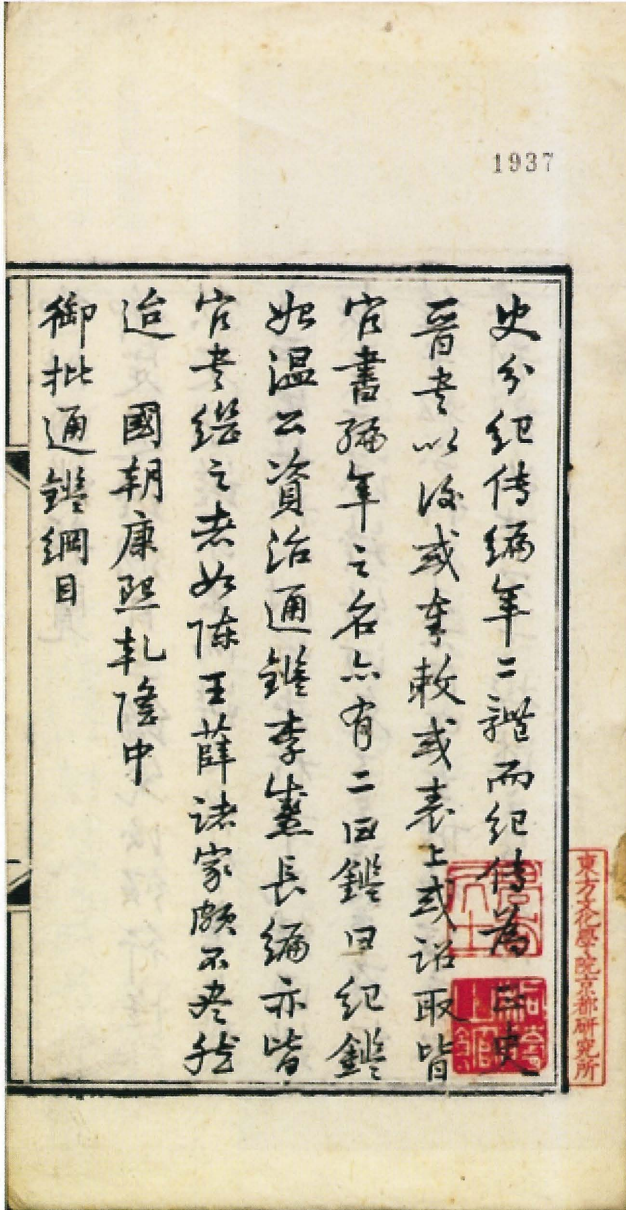 1937
史分紀傳編年二體而紀傳為正史
晉書以後或奉敕或表上或詔取皆
官書編年之名亦有二曰鑑曰紀鑑
如溫公資治通鑑李燾長編亦皆
官書繼之者如陳王薛諸家頗不盡然
迨 國朝康熙乾隆中
御批通鑑綱目
東方文化學院京都研究所